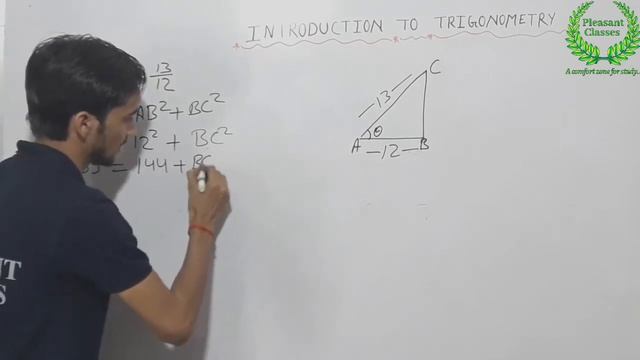 INTRODUCTION TO TRIGONOMETRY
Pleasant
Classes
A comfort zone for study.
13
12
AB² + BC²
12² + BC²
= 144 + BC
C
13
θ
A
12
B